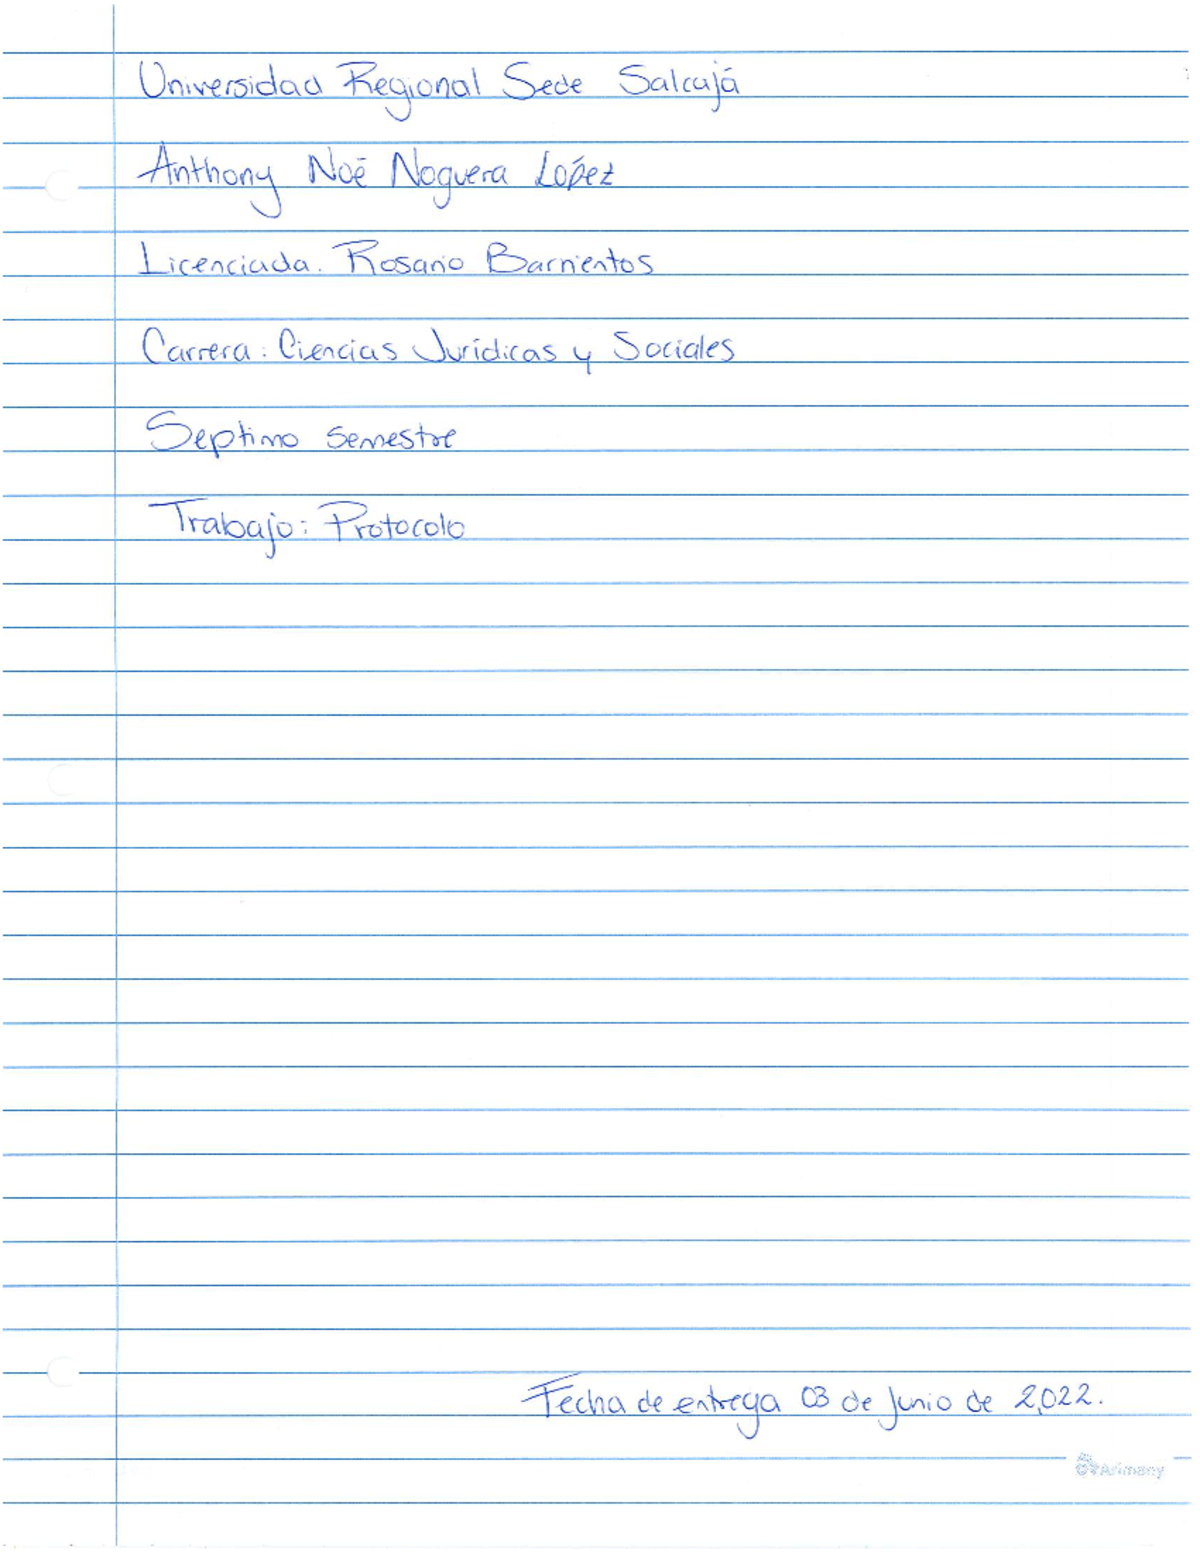 Universidad Regional Sede Salcajá
Anthony Noé Noguera López
Licenciada. Rosario Barrientos
Carrera: Ciencias Jurídicas y Sociales
Septimo semestre
Trabajo: Protocolo
Fecha de entrega 03 de Junio de 2,022.
Arimany